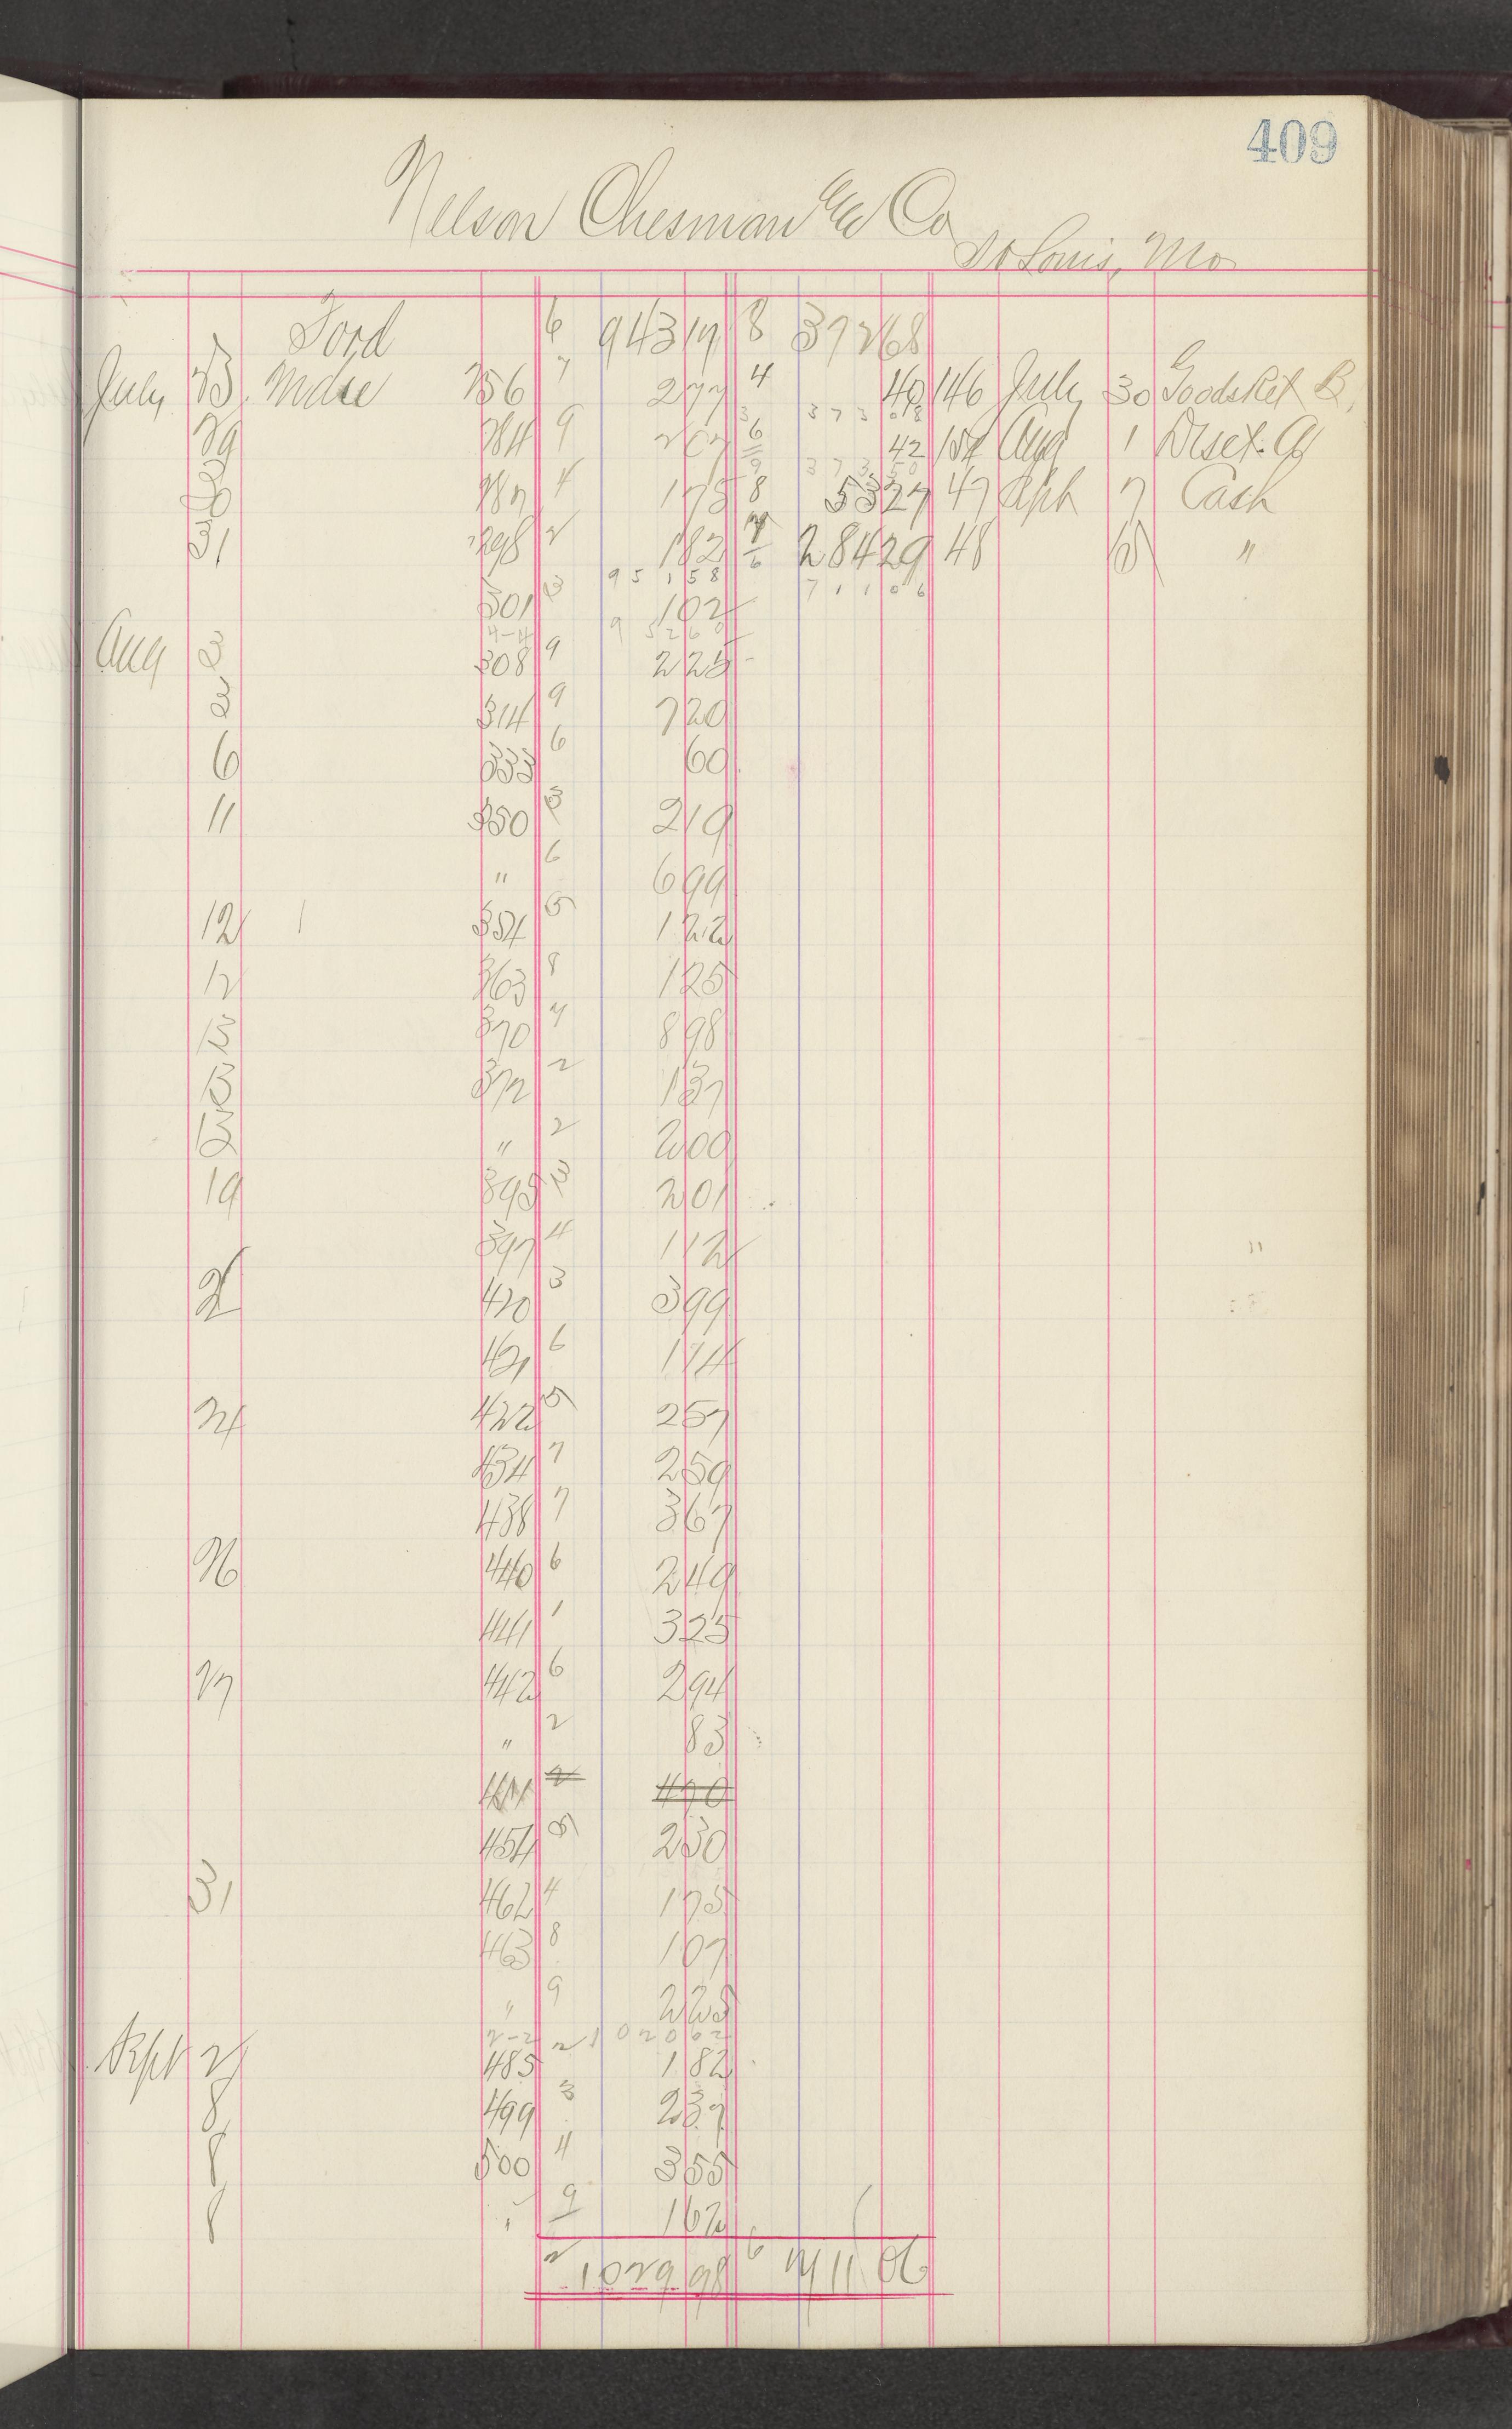 409
Nelson Chesman & Co
St Louis, Mo
Ford 6 943 17 8 372 68
July 23 Mdse 256 7 2 77 4 40 146 July 30 Goods Ret B
3 373 08
29 284 9 2 07 6 42 154 Aug 1 Disct.
9 373 50
30 287 4 1 75 8 53 27 47 Sph 7 Cash
31 298 2 1 82 7 284 29 48 "
951 58 6 711 06
301 3 1 02
4-4 9 52 60
Aug 3 308 9 2 25
3 314 9 7 20
6 333 6 60
11 350 3 2 19
" 6 6 99
12 354 5 1 22
12 363 8 1 25
13 370 7 8 98
13 372 2 1 37
13 " 2 2 00
19 395 3 2 01
397 4 1 12
21 420 3 3 99
421 6 1 14
24 422 5 2 57
434 7 2 59
438 7 3 67
26 440 6 2 49
441 1 3 25
27 442 6 2 94
" 2 83
2 4 70
454 5 2 30
31 462 4 1 75
463 8 1 07
" 9 2 25
2-2 2 1020 62
Sept 2 485 1 82
8 499 3 2 37
8 500 4 3 55
8 " 9 1 62
2 1029 98 6 711 06